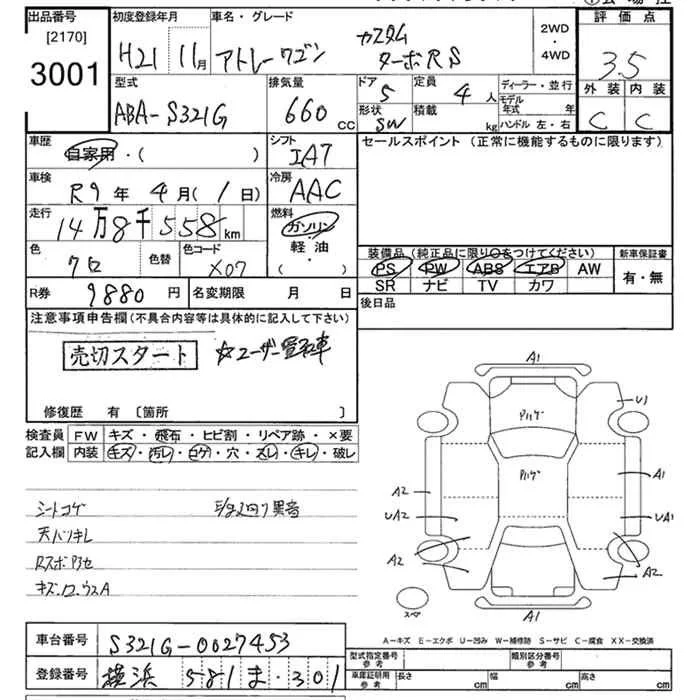 出品番号 初度登録年月 車名・グレード 2WD 評価点
[2170] H21 11月 アトレーワゴン カスタム ターボRS ・ 3.5
3001 4WD
型式 排気量 ドア 定員 ディーラー・並行 外装 内装
ABA-S321G 660CC 5 4人 モデル年式 年 C C
形状 積載 ハンドル 左・右
SW kg
車歴 シフト セールスポイント (正常に機能するものに限ります)
自家用・( ) IA7
車検 冷房
R9年4月(1日) AAC
走行 燃料
14万8千558km ガソリン・軽・油( )
色 色替 色コード
クロ X07
装備品(純正品に限り○をつけてください) 新車保証書
PS PW ABS エアB AW 有・無
SR ナビ TV カワ
R券 9880円 名変期限 月 日 後日品
注意事項申告欄(不具合内容等は具体的に記入して下さい)
売切スタート ☆ユーザー買取車
修復歴 有 〔箇所 〕
検査員 FW キズ・飛石・ヒビ割・リペア跡・×要
記入欄 内装 キズ・汚レ・コゲ・穴・スレ・キレ・破レ
シートコゲ
天バリキレ
A1
U1
Pハゲ
Pハゲ
A1
A2
UA2
UA1
A2
A2
スペア
A1
A-キズ E-エクボ U-凹み W-補修跡 S-サビ C-腐食 XX-交換済
車台番号 S321G-0027453
型式指定番号 参考 類別区分番号 参考
登録番号 横浜 581 ま・301
車庫証明用 参考 長さ cm 幅 cm 高さ cm